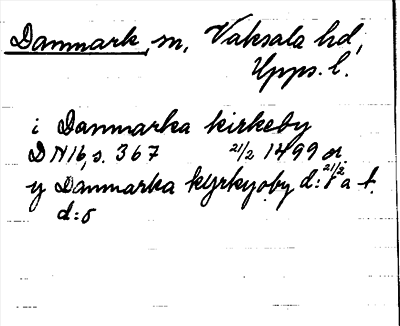 Danmark, sn, Vaksala hd,
Upps. l.
i Danmarka kirkeby
DN 16, s. 367 21/2 1499 or.
y Danmarka kyrkyoby d:o 21/2 a t.
d:o